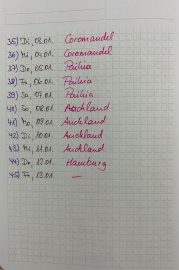 35) Di, 03.01. Coromandel
36) Mi, 04.01. Coromandel
37) Do, 05.01. Paihia
38) Fr, 06.01. Paihia
39) Sa, 07.01. Paihia
40) So, 08.01. Auckland
41) Mo, 09.01. Auckland
42) Di, 10.01. Auckland
43) Mi, 11.01. Auckland
44) Do, 12.01. Hamburg
45) Fr, 13.01. —